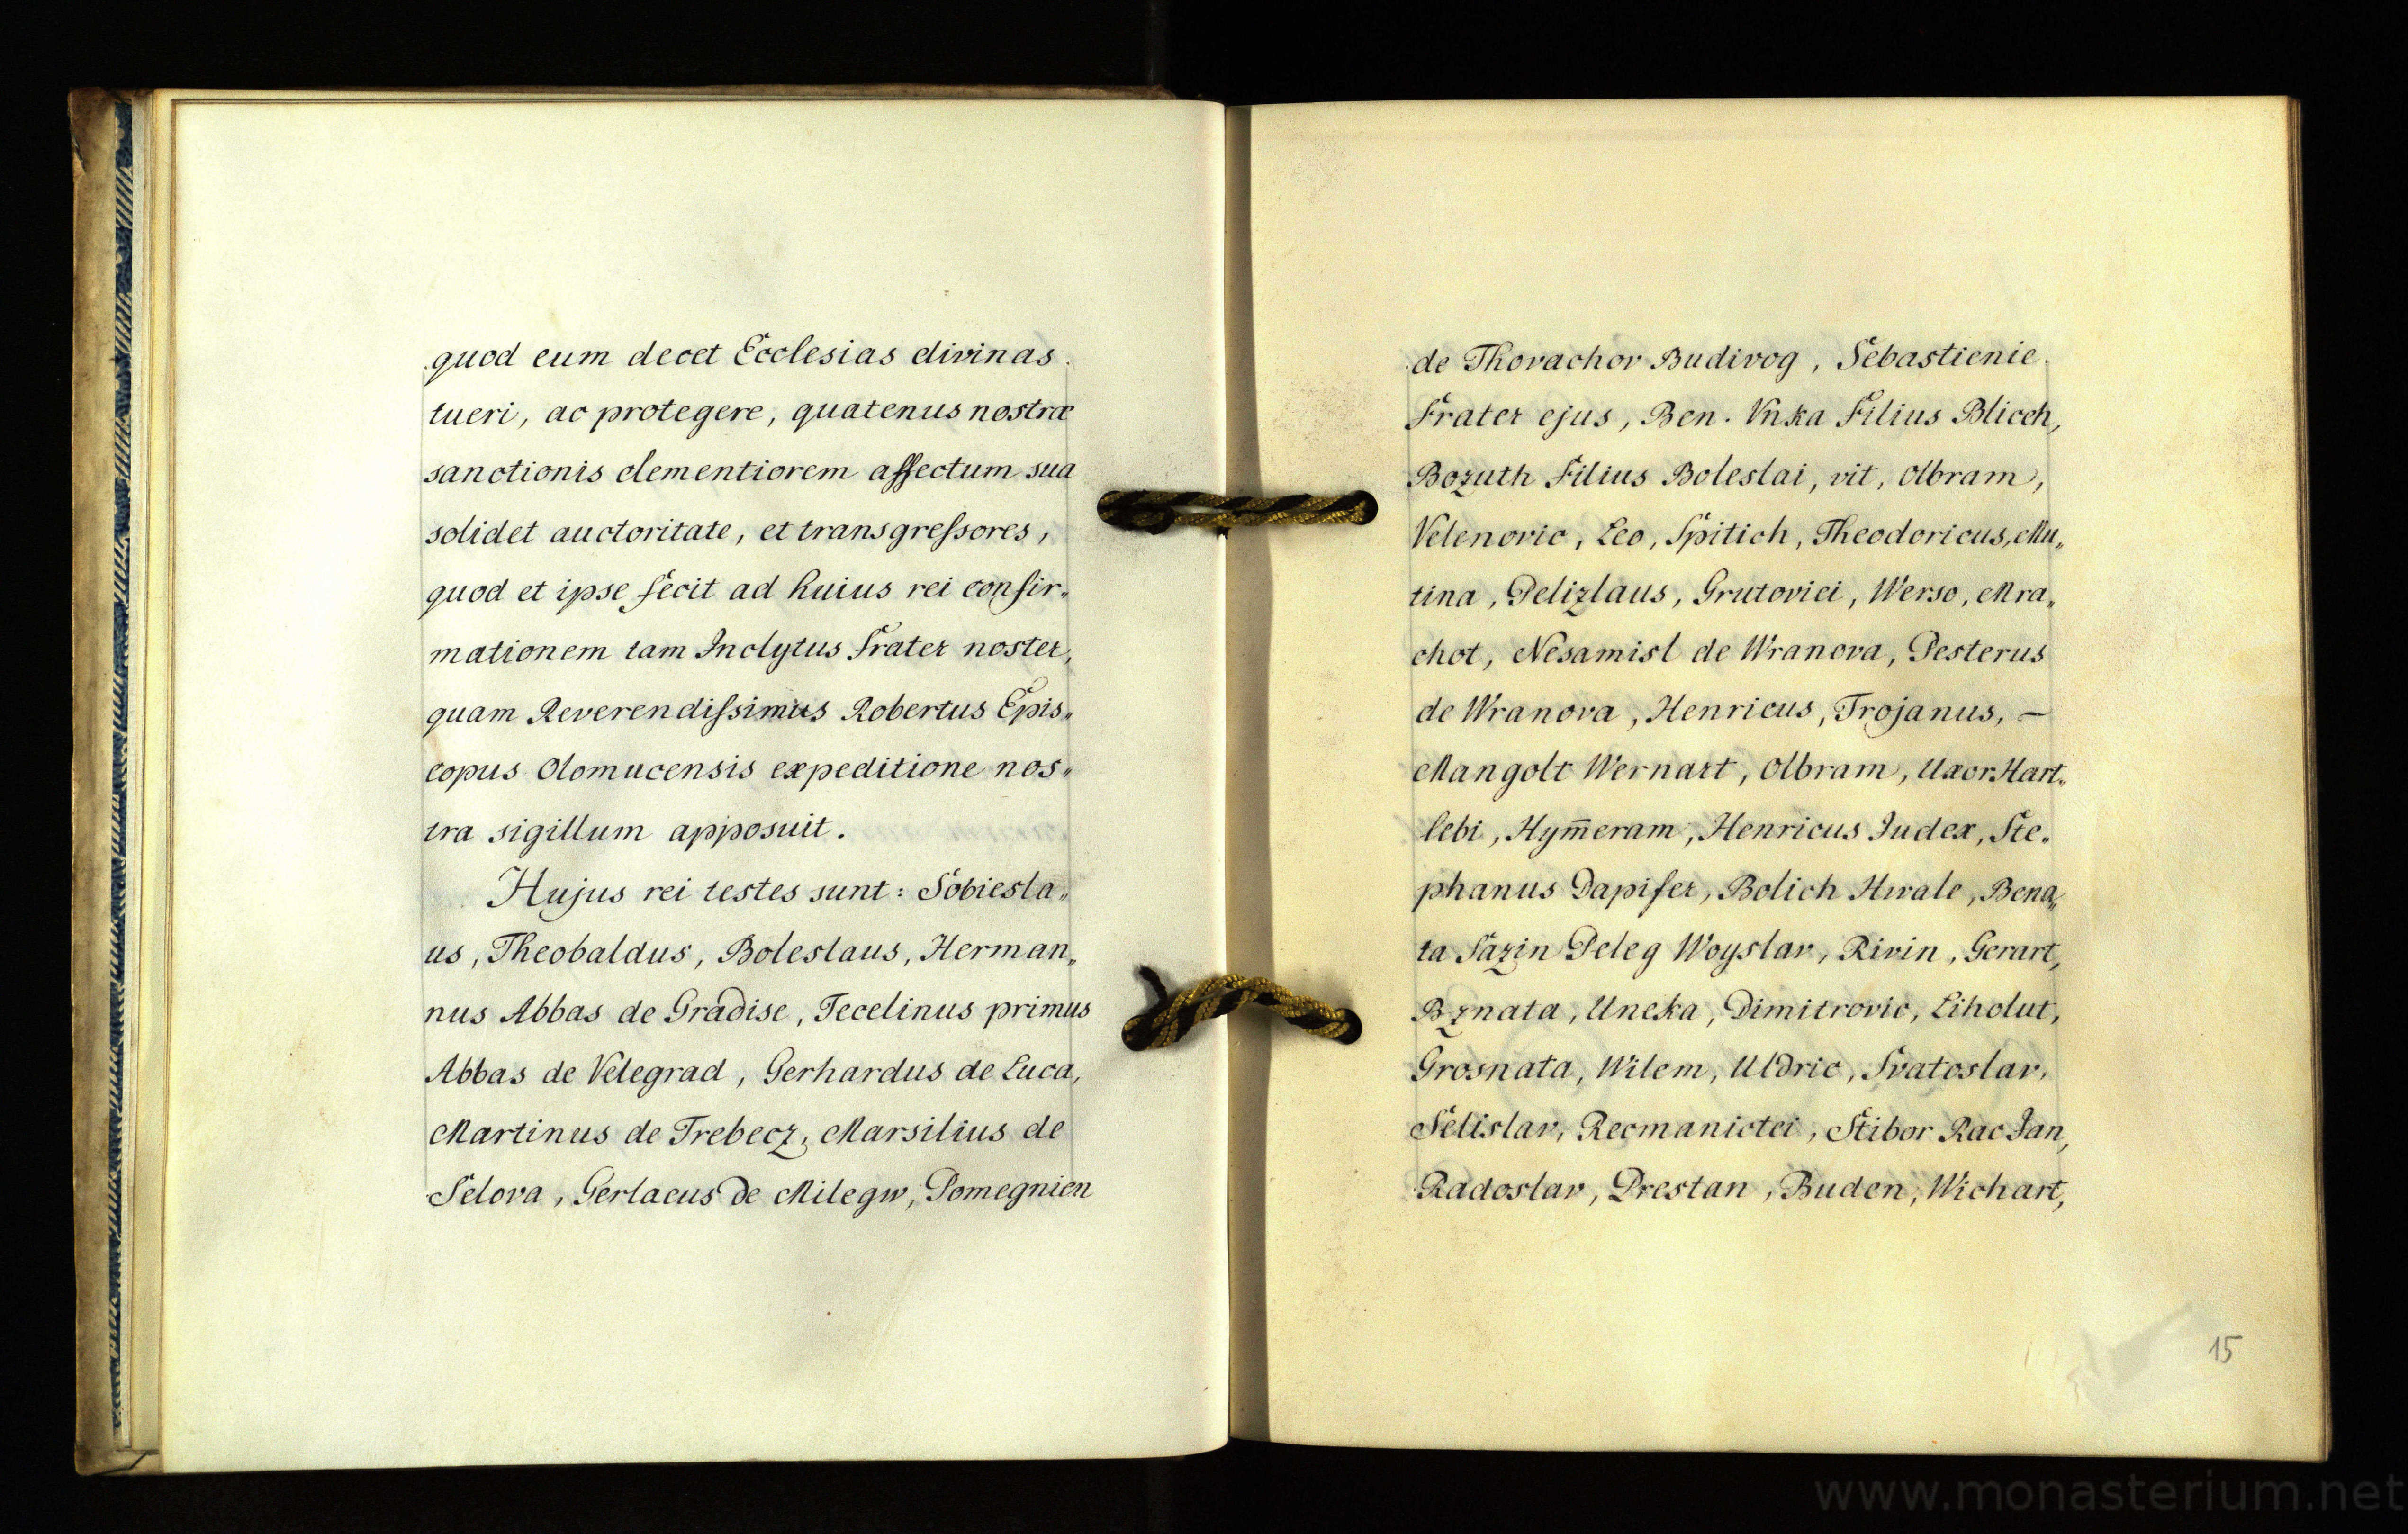 quod eum decet Ecclesias divinas
tueri, ac protegere, quatenus nostræ
sanctionis clementiorem affectum sua
solidet auctoritate, et transgreſsores,
quod et ipse fecit ad huius rei confir„
mationem tam Inclytus Frater noster,
quam Reverendiſsimus Robertus Epis„
copus Olomucensis expeditione nos„
tra sigillum apposuit.
Hujus rei testes sunt: Sobiesla„
us, Theobaldus, Boleslaus, Herman„
nus Abbas de Gradise, Tecelinus primus
Abbas de Velegrad, Gerhardus de Luca,
Martinus de Trebecz, Marsilius de
Selova, Gerlacus de Milegw, Pomegnien
de Thovachov Budivog, Sebastienie
Frater ejus, Ben. Vnka Filius Blicch,
Bozuth Filius Boleslai, vit, Olbram,
Velenovic, Leo, Spitich, Theodoricus, Mu„
tina, Pelizlaus, Grutovici, Werso, Mra„
chot, Nesamisl de Wranova, Pesterus
de Wranova, Henricus, Trojanus, —
Mangolt Wernart, Olbram, Uxor Hart„
lebi, Hym̄eram, Henricus Judex, Ste„
phanus Dapifer, Bolich Hwale, Bena„
ta Sazin Peleg Woyslav, Rivin, Gerart,
Bznata, Uneka, Dimitrovic, Liholut,
Grosnata, Wilem, Uldric, Svatoslav,
Selislav, Recmanictei, Stibor Rac Jan,
Radoslav, Prestan, Buden, Wichart,
15
www.monasterium.net